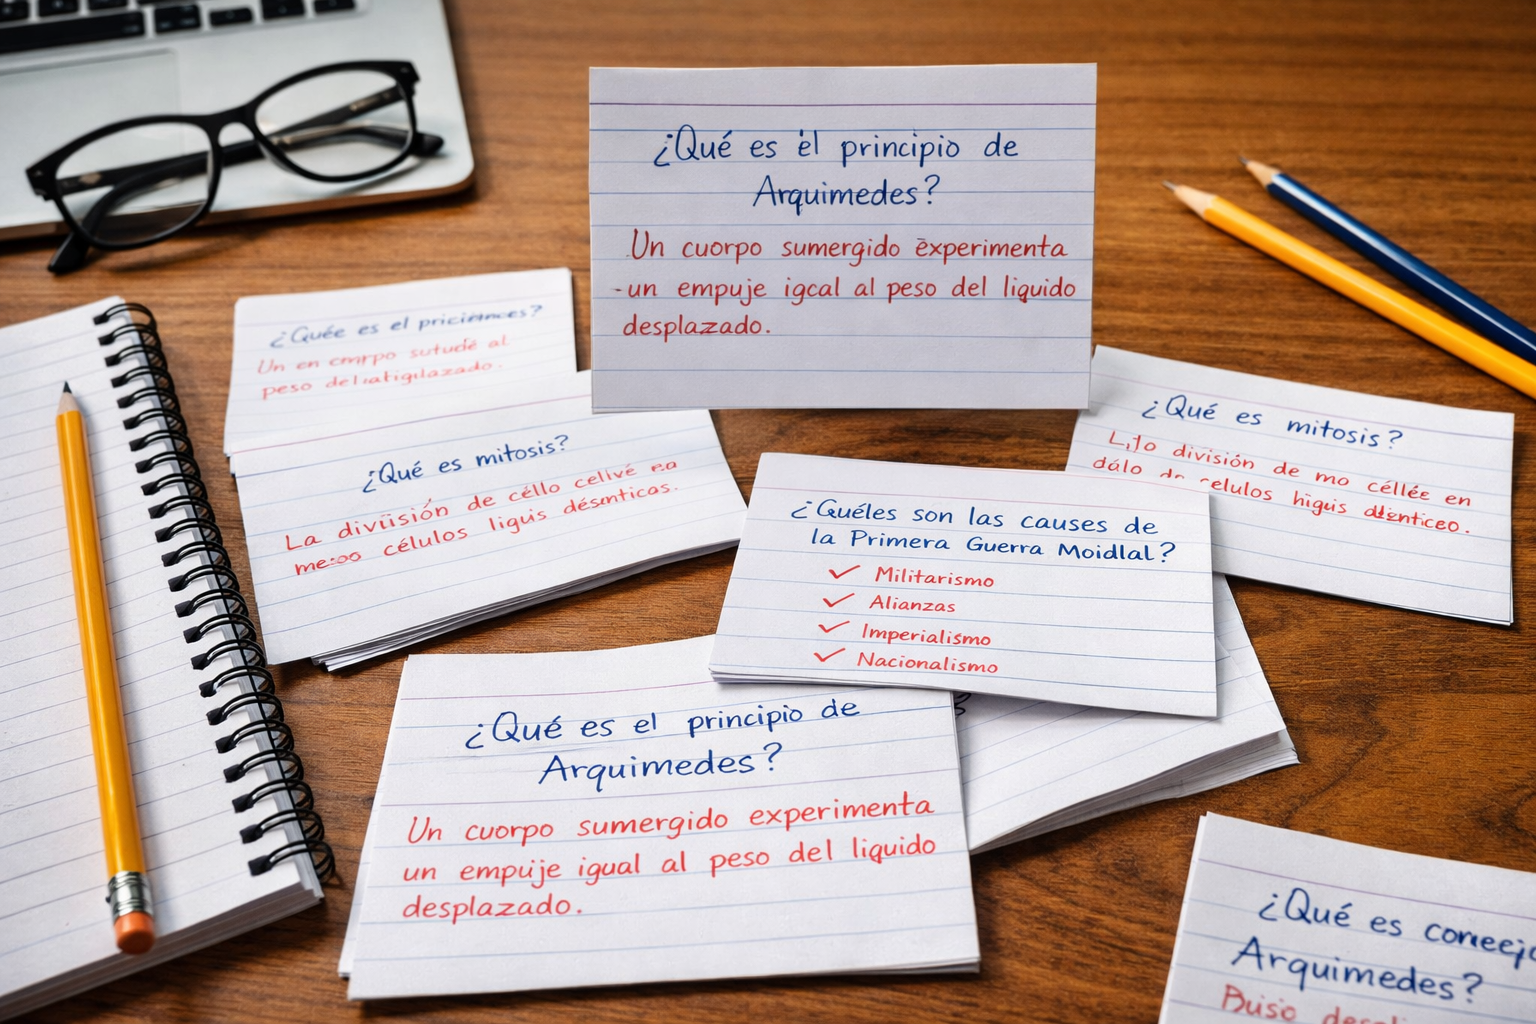 ¿Qué es el principio de
Arquimedes?
Un cuorpo sumergido experimenta
-un empuje igcal al peso del liquido
desplazado.
¿Quée es el
Un en
peso
¿Qué es mitosis?
La diviisión de céllo celivé
células liguis
¿Qué es mitosis?
división de mo céllée en
dálo celulos higuis
¿Quéles son las causes de
la Primera Guerra Moidlal?
✓ Militarismo
✓ Alianzas
✓ Imperialismo
✓ Nacionalismo
¿Qué es el principio de
Arquimedes?
Un cuorpo sumergido experimenta
un empuje igual al peso del liquido
desplazado.
¿Qué es
Arquimedes?